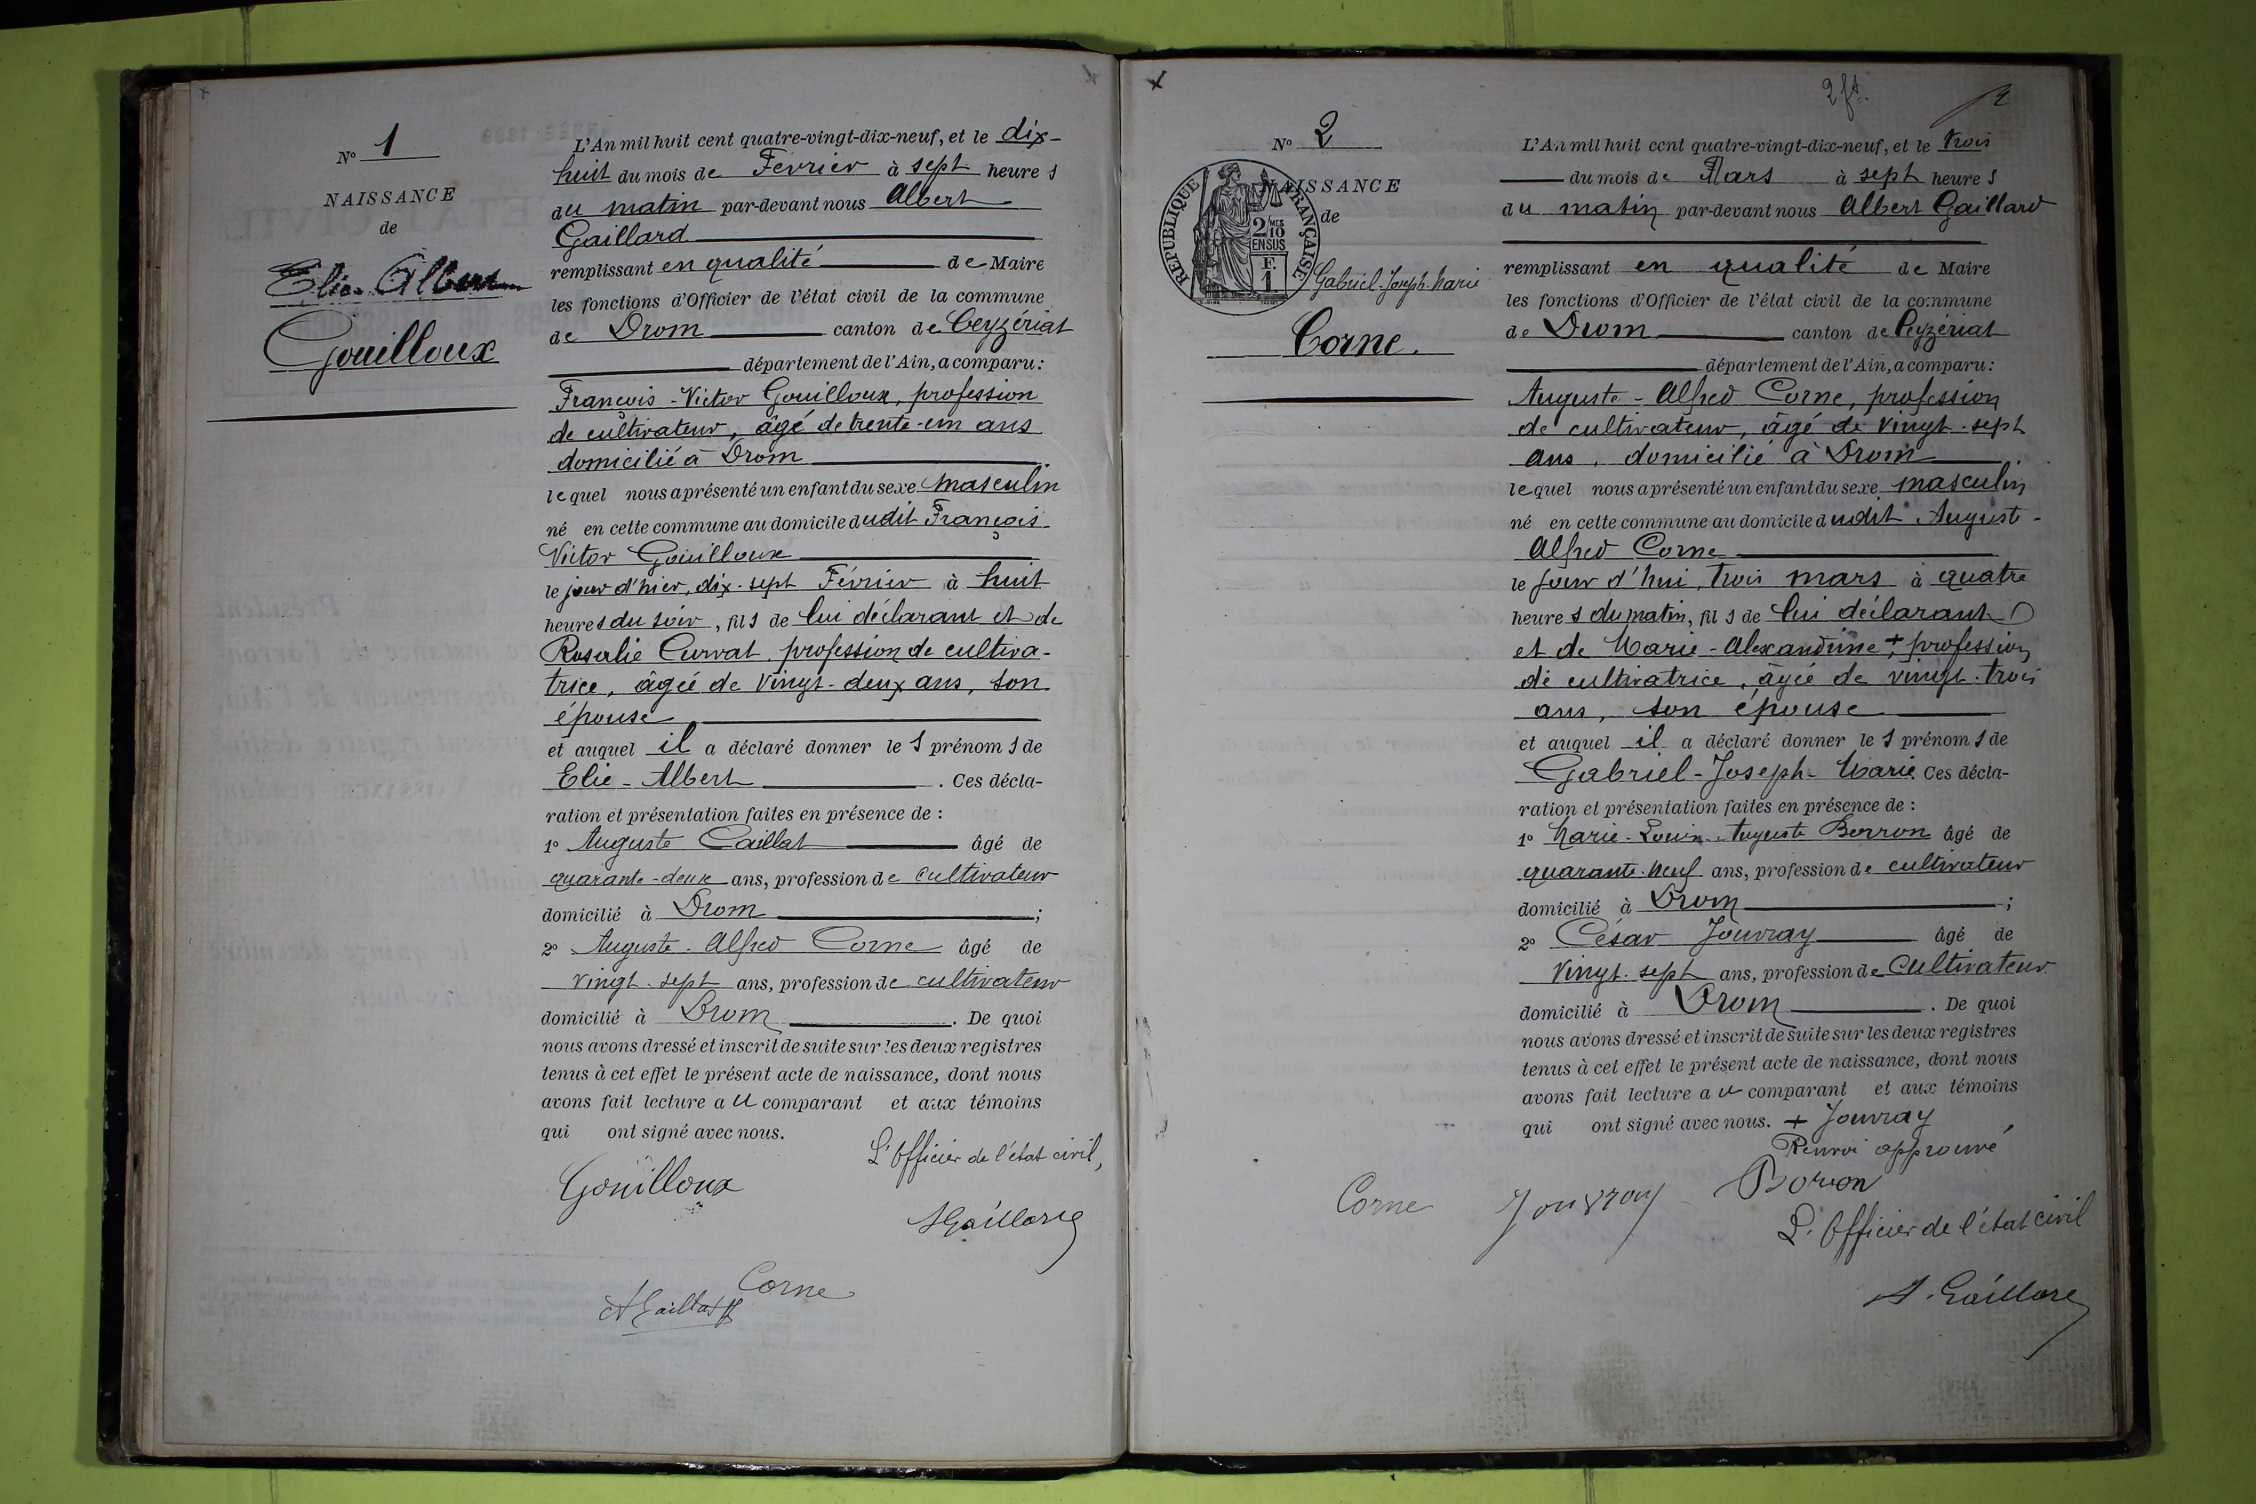 N° 1
NAISSANCE
de
Elie-Albert
Gouilloux
L'An mil huit cent quatre-vingt-dix-neuf, et le dix-
huit du mois de Février à sept heures
du matin par-devant nous Albert
Gaillard
remplissant en qualité de Maire
les fonctions d'Officier de l'état civil de la commune
de Drom canton de Ceyzériat
département de l'Ain, a comparu:
François-Victor Gouilloux, profession
de cultivateur, âgé de trente-un ans
domicilié à Drom
lequel nous a présenté un enfant du sexe masculin
né en cette commune au domicile dudit François-
Victor Gouilloux
le jour d'hier, dix-sept Février à huit
heures du soir, fils de lui déclarant et de
Rosalie Curvat, profession de cultiva-
trice, âgée de vingt-deux ans, son
épouse
et auquel il a déclaré donner les prénoms de
Elie-Albert. Ces décla-
ration et présentation faites en présence de :
1° Auguste Caillat âgé de
quarante-deux ans, profession de cultivateur
domicilié à Drom ;
2° Auguste-Alfred Corne âgé de
vingt-sept ans, profession de cultivateur
domicilié à Drom. De quoi
nous avons dressé et inscrit de suite sur les deux registres
tenus à cet effet le présent acte de naissance, dont nous
avons fait lecture au comparant et aux témoins
qui ont signé avec nous.
L'Officier de l'état civil,
Gouilloux
AGaillard
Corne
ACaillat
2 ft.
2
N° 2
NAISSANCE
de
RÉPUBLIQUE FRANÇAISE
2/10
EN SUS
F.
1
Gabriel-Joseph-Marie
Corne.
L'An mil huit cent quatre-vingt-dix-neuf, et le trois
du mois de Mars à sept heures
du matin par-devant nous Albert Gaillard
remplissant en qualité de Maire
les fonctions d'Officier de l'état civil de la commune
de Drom canton de Ceyzériat
département de l'Ain, a comparu:
Auguste-Alfred Corne, profession
de cultivateur, âgé de vingt-sept
ans, domicilié à Drom
lequel nous a présenté un enfant du sexe masculin
né en cette commune au domicile dudit Auguste-
Alfred Corne
le jour d'hui, trois mars à quatre
heures du matin, fils de lui déclarant
et de Marie-Alexandrine +, profession
de cultivatrice, âgée de vingt-trois
ans, son épouse
et auquel il a déclaré donner les prénoms de
Gabriel-Joseph-Marie. Ces décla-
ration et présentation faites en présence de :
1° Marie-Louis-Auguste Borron âgé de
quarante-neuf ans, profession de cultivateur
domicilié à Drom ;
2° César Jouvray âgé de
vingt-sept ans, profession de cultivateur
domicilié à Drom. De quoi
nous avons dressé et inscrit de suite sur les deux registres
tenus à cet effet le présent acte de naissance, dont nous
avons fait lecture au comparant et aux témoins
qui ont signé avec nous. + Jouvray
Renvoi approuvé
Corne Jouvray Borron
L'Officier de l'état civil
A. Gaillard